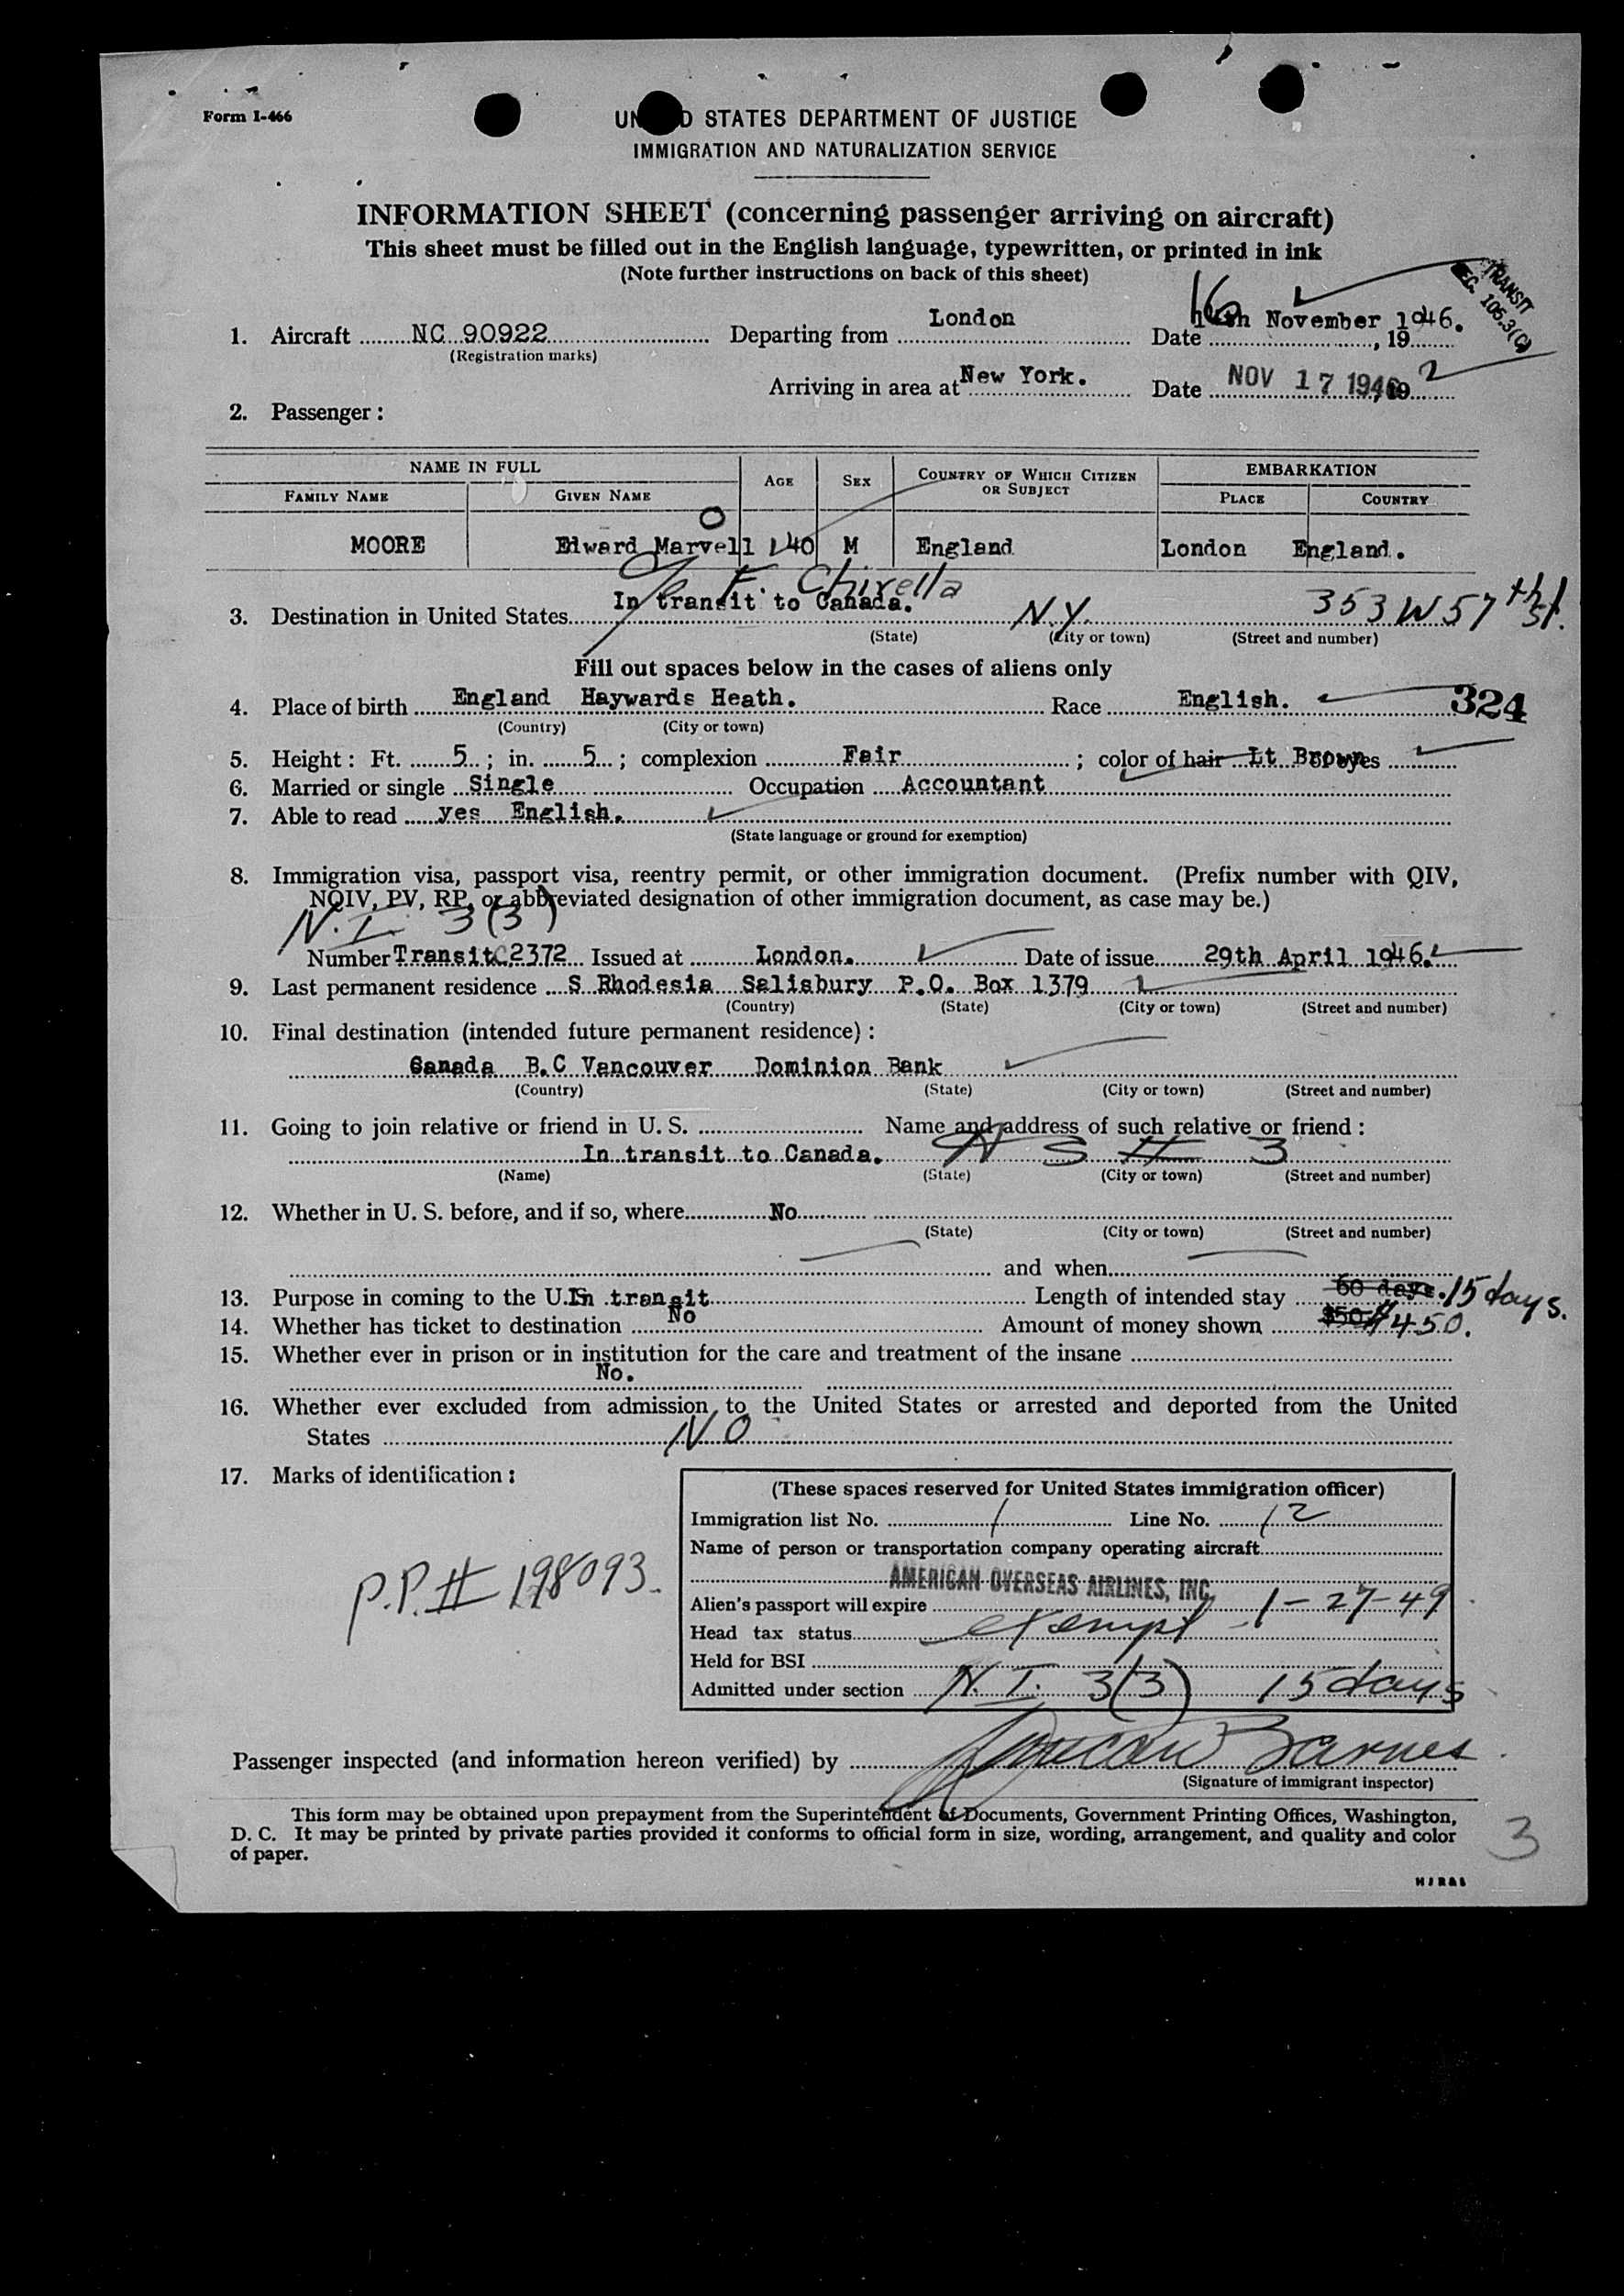 Form I-466
UNITED STATES DEPARTMENT OF JUSTICE
IMMIGRATION AND NATURALIZATION SERVICE
INFORMATION SHEET (concerning passenger arriving on aircraft)
This sheet must be filled out in the English language, typewritten, or printed in ink
(Note further instructions on back of this sheet)
TRANSIT
SEC. 105.3(C)
1. Aircraft NC 90922 Departing from London Date 16th November 1946. , 19
(Registration marks)
Arriving in area at New York. Date NOV 17 1946 , 19 2
2. Passenger :
NAME IN FULL AGE SEX COUNTRY OF WHICH CITIZEN OR SUBJECT EMBARKATION
FAMILY NAME GIVEN NAME PLACE COUNTRY
MOORE Edward Marvell 40 M England London England.
c/o F. Chirella
3. Destination in United States In transit to Canada. N.Y. 353 W 57th St.
(State) (City or town) (Street and number)
Fill out spaces below in the cases of aliens only
4. Place of birth England Haywards Heath. Race English. 324
(Country) (City or town)
5. Height : Ft. 5 ; in. 5 ; complexion Fair ; color of hair Lt Brown eyes
6. Married or single Single Occupation Accountant
7. Able to read yes English.
(State language or ground for exemption)
8. Immigration visa, passport visa, reentry permit, or other immigration document. (Prefix number with QIV,
NQIV, PV, RP, or abbreviated designation of other immigration document, as case may be.)
N.I. 3(3)
Number Transit C2372 Issued at London. Date of issue 29th April 1946.
9. Last permanent residence S Rhodesia Salisbury P.O. Box 1379
(Country) (State) (City or town) (Street and number)
10. Final destination (intended future permanent residence) :
Canada B.C Vancouver Dominion Bank
(Country) (State) (City or town) (Street and number)
11. Going to join relative or friend in U. S. Name and address of such relative or friend :
In transit to Canada. 3
(Name) (State) (City or town) (Street and number)
12. Whether in U. S. before, and if so, where No
(State) (City or town) (Street and number)
and when
13. Purpose in coming to the U.S. In transit Length of intended stay 60 days. 15 days.
14. Whether has ticket to destination No Amount of money shown $50 $450.
15. Whether ever in prison or in institution for the care and treatment of the insane
No.
16. Whether ever excluded from admission to the United States or arrested and deported from the United
States NO
17. Marks of identification :
P.P. # 198093.
(These spaces reserved for United States immigration officer)
Immigration list No. 1 Line No. 12
Name of person or transportation company operating aircraft
AMERICAN OVERSEAS AIRLINES, INC.
Alien's passport will expire 1-27-49
Head tax status exempt
Held for BSI
Admitted under section N.I. 3(3) 15 days
Passenger inspected (and information hereon verified) by Duncan Barnes
(Signature of immigrant inspector)
This form may be obtained upon prepayment from the Superintendent of Documents, Government Printing Offices, Washington,
D. C. It may be printed by private parties provided it conforms to official form in size, wording, arrangement, and quality and color
of paper.
3